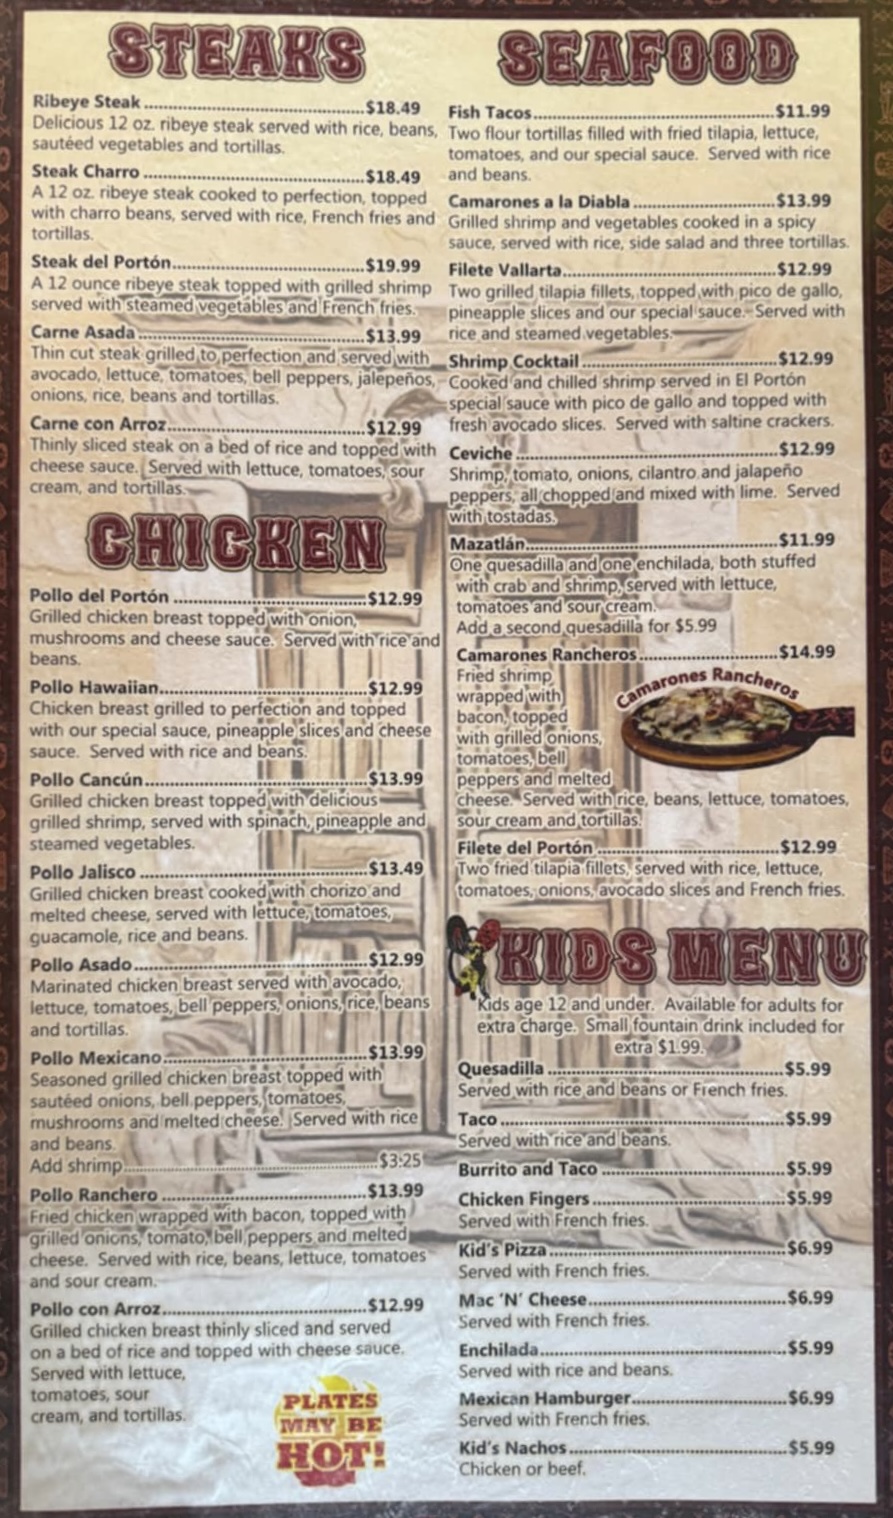 STEAKS
Ribeye Steak ..........$18.49
Delicious 12 oz. ribeye steak served with rice, beans,
sautéed vegetables and tortillas.
Steak Charro ..........$18.49
A 12 oz. ribeye steak cooked to perfection, topped
with charro beans, served with rice, French fries and
tortillas.
Steak del Portón..........$19.99
A 12 ounce ribeye steak topped with grilled shrimp
served with steamed vegetables and French fries.
Carne Asada ..........$13.99
Thin cut steak grilled to perfection and served with
avocado, lettuce, tomatoes, bell peppers, jalepeños,
onions, rice, beans and tortillas.
Carne con Arroz..........$12.99
Thinly sliced steak on a bed of rice and topped with
cheese sauce. Served with lettuce, tomatoes, sour
cream, and tortillas.
CHICKEN
Pollo del Portón ..........$12.99
Grilled chicken breast topped with onion,
mushrooms and cheese sauce. Served with rice and
beans.
Pollo Hawaiian..........$12.99
Chicken breast grilled to perfection and topped
with our special sauce, pineapple slices and cheese
sauce. Served with rice and beans.
Pollo Cancún..........$13.99
Grilled chicken breast topped with delicious
grilled shrimp, served with spinach, pineapple and
steamed vegetables.
Pollo Jalisco ..........$13.49
Grilled chicken breast cooked with chorizo and
melted cheese, served with lettuce, tomatoes,
guacamole, rice and beans.
Pollo Asado..........$12.99
Marinated chicken breast served with avocado,
lettuce, tomatoes, bell peppers, onions, rice, beans
and tortillas.
Pollo Mexicano..........$13.99
Seasoned grilled chicken breast topped with
sautéed onions, bell peppers, tomatoes,
mushrooms and melted cheese. Served with rice
and beans.
Add shrimp..........$3.25
Pollo Ranchero ..........$13.99
Fried chicken wrapped with bacon, topped with
grilled onions, tomato, bell peppers and melted
cheese. Served with rice, beans, lettuce, tomatoes
and sour cream.
Pollo con Arroz..........$12.99
Grilled chicken breast thinly sliced and served
on a bed of rice and topped with cheese sauce.
Served with lettuce,
tomatoes, sour
cream, and tortillas.
PLATES
MAY BE
HOT!
SEAFOOD
Fish Tacos..........$11.99
Two flour tortillas filled with fried tilapia, lettuce,
tomatoes, and our special sauce. Served with rice
and beans.
Camarones a la Diabla ..........$13.99
Grilled shrimp and vegetables cooked in a spicy
sauce, served with rice, side salad and three tortillas.
Filete Vallarta..........$12.99
Two grilled tilapia fillets, topped with pico de gallo,
pineapple slices and our special sauce. Served with
rice and steamed vegetables.
Shrimp Cocktail ..........$12.99
Cooked and chilled shrimp served in El Portón
special sauce with pico de gallo and topped with
fresh avocado slices. Served with saltine crackers.
Ceviche ..........$12.99
Shrimp, tomato, onions, cilantro and jalapeño
peppers, all chopped and mixed with lime. Served
with tostadas.
Mazatlán..........$11.99
One quesadilla and one enchilada, both stuffed
with crab and shrimp, served with lettuce,
tomatoes and sour cream.
Add a second quesadilla for $5.99
Camarones Rancheros..........$14.99
Fried shrimp
wrapped with
bacon, topped
with grilled onions,
tomatoes, bell
peppers and melted
cheese. Served with rice, beans, lettuce, tomatoes,
sour cream and tortillas.
Camarones Rancheros
Filete del Portón ..........$12.99
Two fried tilapia fillets, served with rice, lettuce,
tomatoes, onions, avocado slices and French fries.
KIDS MENU
Kids age 12 and under. Available for adults for
extra charge. Small fountain drink included for
extra $1.99.
Quesadilla ..........$5.99
Served with rice and beans or French fries.
Taco ..........$5.99
Served with rice and beans.
Burrito and Taco ..........$5.99
Chicken Fingers..........$5.99
Served with French fries.
Kid's Pizza..........$6.99
Served with French fries.
Mac 'N' Cheese..........$6.99
Served with French fries.
Enchilada..........$5.99
Served with rice and beans.
Mexican Hamburger..........$6.99
Served with French fries.
Kid's Nachos..........$5.99
Chicken or beef.